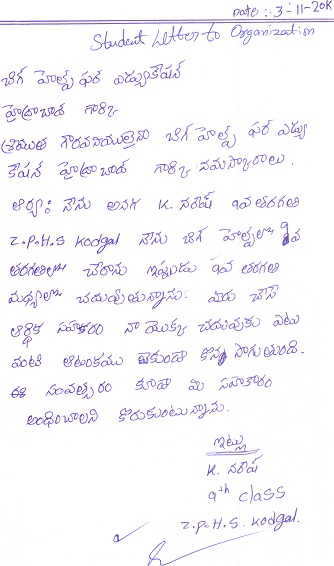 Date :- 3-11-20
Student Letter to Organization
బిగ హెల్ప్ ఫర్ ఎడ్యుకేషన్
హైద్రాబాద్ గార్కి
శ్రీయుత గౌరవనీయులైన బిగ హెల్ప్ ఫర్ ఎడ్యు
కేషన్ హైద్రాబాద్ గార్కి నమస్కారాలు.
ఆర్యా: నేను అనగ K. నరేష్ 9వ తరగతి
Z.P.H.S Kodgal నేను బిగ హెల్పులో 9వ
తరగతిలో చేరాను ఇప్పుడు 9వ తరగతి
మధ్యలో చదువుతున్నాను. మీరు చేసే
ఆర్థిక సహకారం నా యొక్క చదువుకు ఎటు
వంటి ఆటంకము లేకుండా కొన సాగుతుంది.
ఈ సంవత్సరం కూడా మీ సహకారం
అందించాలని కోరుకుంటున్నాను.
ఇట్లు
K. నరేష్
9th class
Z.P.H.S. Kodgal.